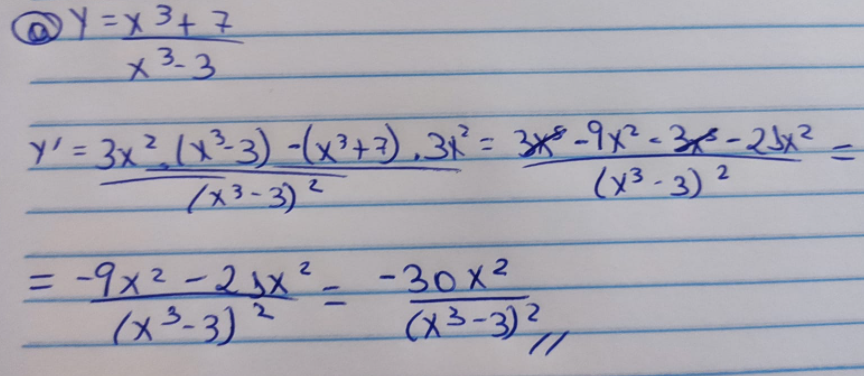 ⓐ y = (x³+7)/(x³-3)
y' = (3x².(x³-3) -(x³+7).3x²)/(x³-3)² = (3x⁵-9x²-3x⁵-21x²)/(x³-3)² =
= (-9x²-21x²)/(x³-3)² = (-30x²)/(x³-3)² //